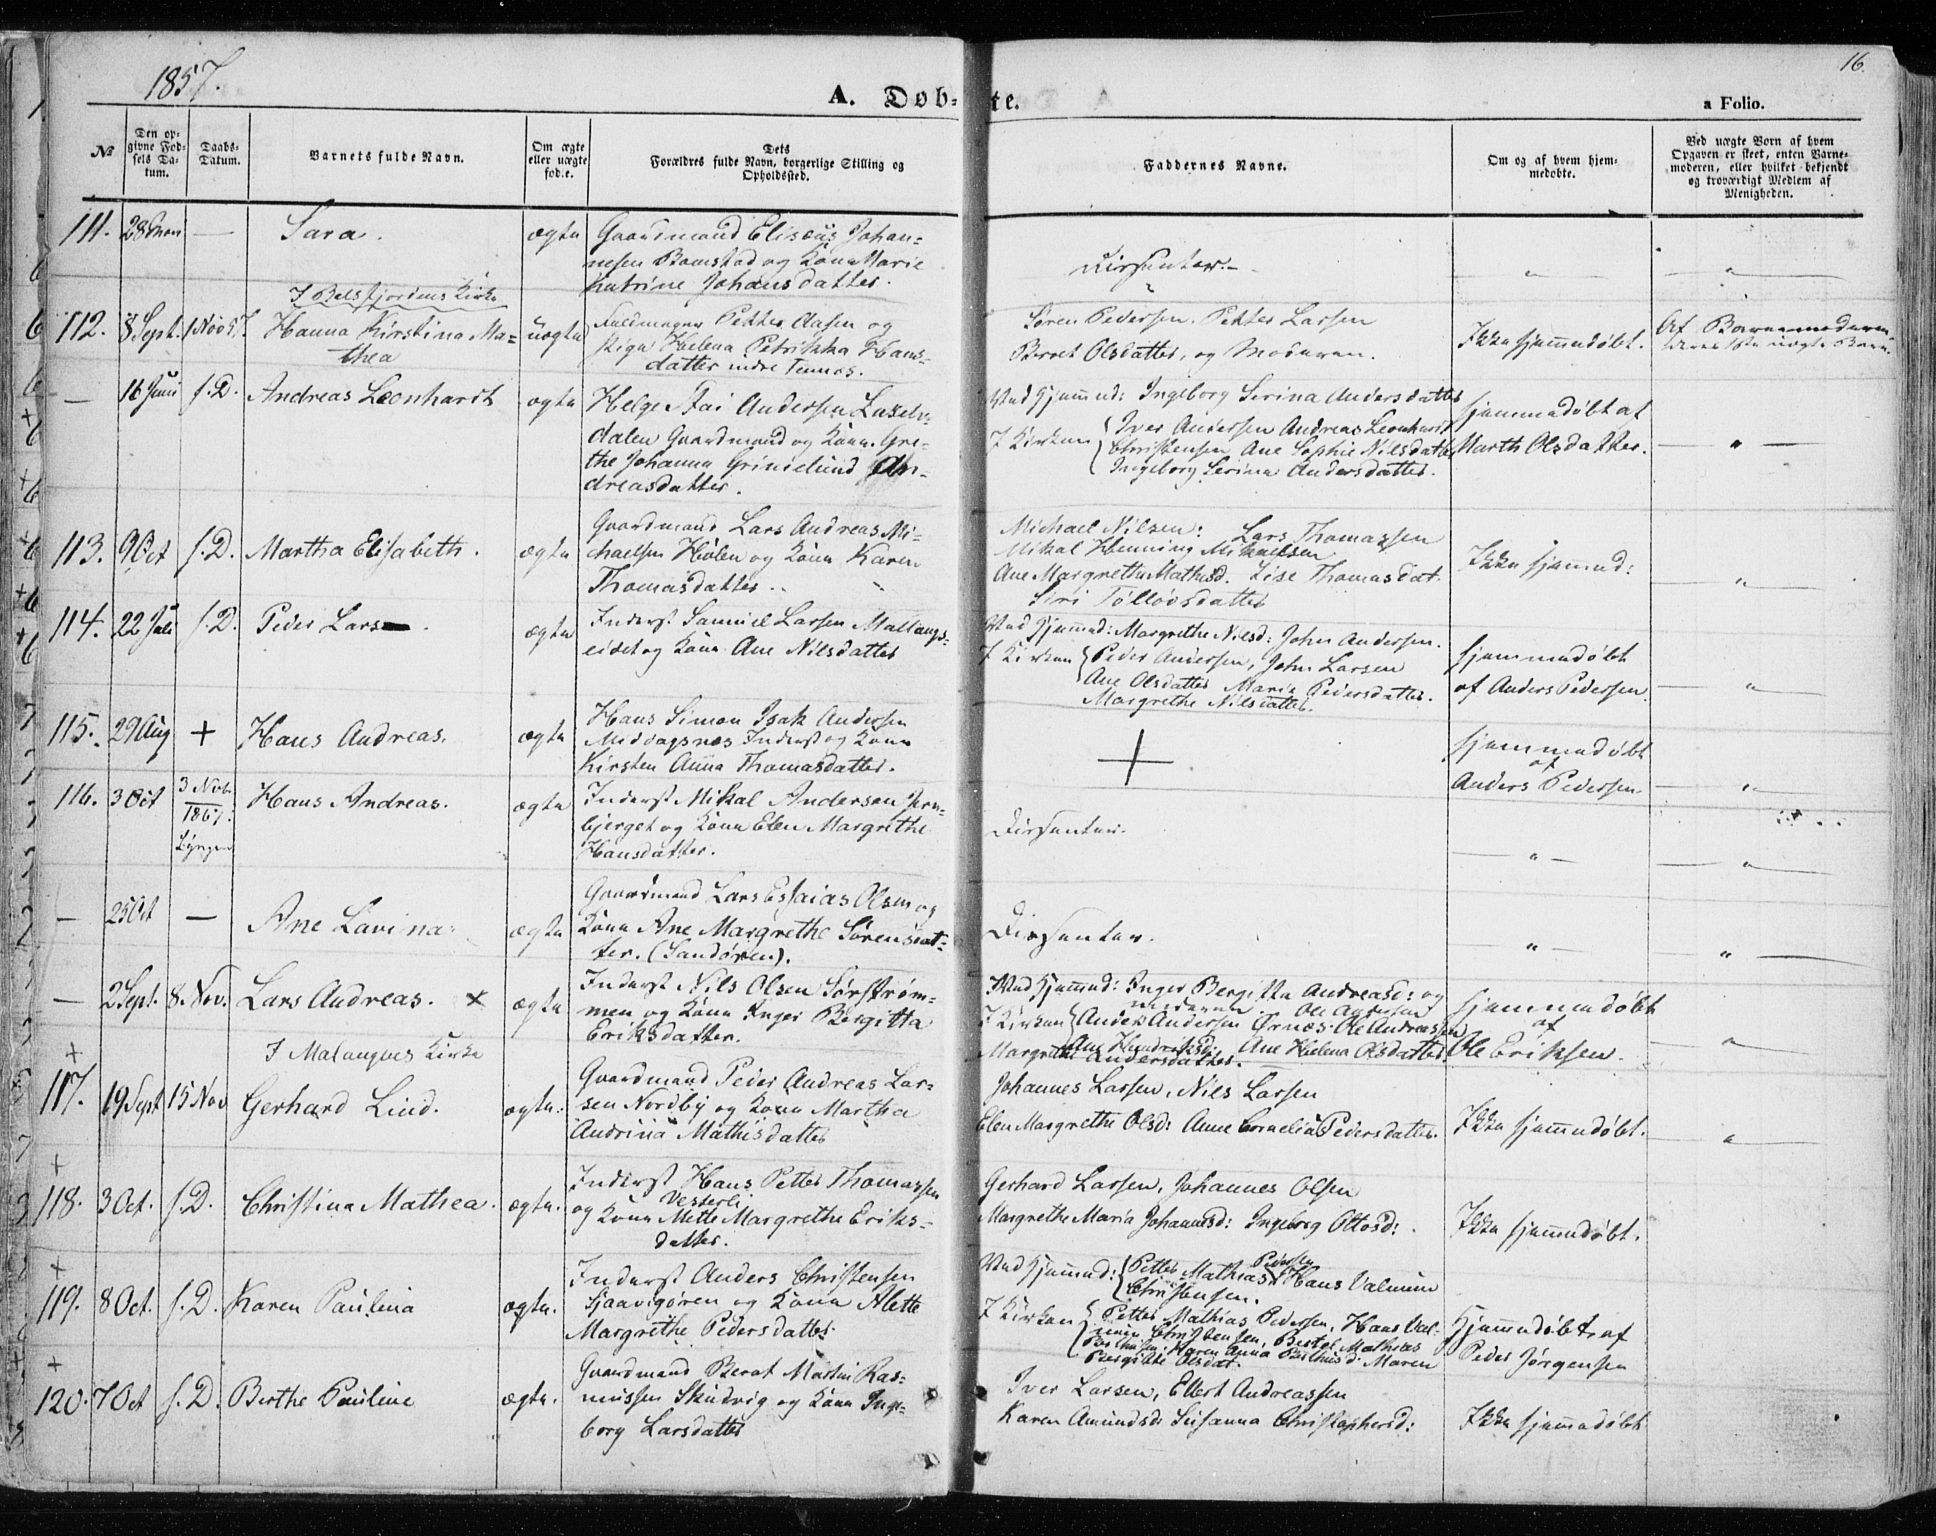 1857.
16.
A. Døb-te.
a Folio.
№
Den op-
givne Fød-
sels Da-
tum.
Daabs-
Datum.
Barnets fulde Navn.
Om ægte
eller uægte
fød.e.
Dets
Forældres fulde Navn, borgerlige Stilling og
Opholdssted.
Faddernes Navne.
Om og af hvem hjem-
medøbte.
Ved uægte Børn af hvem
Opgaven er skeet, enten Barne-
moderen, eller hvilket bekjendt
og troværdigt Medlem af
Menigheden.
111. 28 — Sara. ægte
Gaardmand Eliseus Johan-
nesen Bomstad og Kone Marie
Katrine Johansdatter.
Dissenter. — " — " —
I Balsfjordens Kirke
112. 8 Sept. 1 Nov 57. Hanna Kirstina Ma-
thea
uægte
Petter Aasen og
Pige Helena Petrikka Hans-
datter indre Tennes.
Søren Pedersen. Petter Larsen
Beret Olsdatter, og Moderen.
Ikke hjemmedøbt.
Af Barnemoderen
— 16 Juni s. D. Andreas Leonhardt ægte
Helge Stai Andersen Laxely-
dalen Gaardmand og Kone Gre-
the Johanna Grinelund An-
dreasdatter.
Ved Hjemmed: Ingeborg Serina Andersdatter
I Kirken Iver Andersen Andreas Leonhard
Christensen Ane Sophie Nilsdatter
Ingeborg Serina Andersdatter.
hjemmedøbt af
Marth Olsdatter.
— " —
113. 9 Oct s. D. Martha Elisabeth. ægte
Gaardmand Lars Andreas Mi-
chaelsen Hølen og Kone Karen
Thomasdatter.
Michael Nilsen: Lars Thomassen
Mikal Henning Mikalsen
Ane Margrethe Mathisd. Lise Thomasdat.
Siri Tølløvsdatter
Ikke hjemmed:
— " —
114. 22 Juli s. D. Peder Lars ægte
Inderst Samuel Larsen Mallangs-
eidet og Kone Ane Nilsdatter
Ved Hjemmed: Margrethe Nilsd: John Andersen.
I Kirken Peder Andersen, John Larsen
Ane Olsdatter Maria Pedersdatter.
Margrethe Nilsdatter.
hjemmedøbt
af Anders Pedersen
— " —
115. 29 Aug + Hans Andreas. ægte
Hans Simon Isak Andersen
Middagsnes Inderst og Kone
Kirsten Anna Thomasdatter.
+
hjemmedøbt
af
Anders Pedersen
— " —
116. 3 Oct 3 Nov.
1867.
Lyngen
Hans Andreas. ægte
Inderst Mikal Andersen Jern-
bjerget og Kone Elen Margrethe
Hansdatter.
Dissenter.
— " — — " —
— 25 Oct — Ane Lavina. ægte
Gaardmand Lars Essaias Olsen og
Kone Ane Margrethe Sørensdat-
ter. (Sandøren).
Dissenter. — " — — " —
— 2 Sept. 8. Nov. Lars Andreas. x ægte
Inderst Nils Olsen Sørstrøm-
men og Kone Inger Bergitta
Eriksdatter.
Ved Hjemmed: Inger Bergitta Andreasd: og
I Kirken Anders Andersen Ørnæs. Ole Andreassen
Ane Hendriksd: Ane Helena Olsdatter
Margrethe Andersdatter.
hjemmedøbt
af
Ole Eriksen.
— " —
I Malangens Kirke
+
117. 19 Sept 15 Nov Gerhard Lind. ægte.
Gaardmand Peder Andreas Lar-
sen Nordby og Kone Martha
Andrina Mathisdatter
Johannes Larsen, Nils Larsen
Elen Margrethe Olsd: Anne Cornelia Pedersdatter.
Ikke hjemmedøbt.
— " —
+
118. 3 Oct. s. D. Christina Mathea. ægte.
Inderst Hans Petter Thomassen
Vesterli
og Kone Mette Margrethe Eriks-
datter.
Gerhard Larsen, Johannes Olsen
Margrethe Maria Johannesd: Ingeborg Ottosd:
Ikke hjemmedøbt.
+
119. 8 Oct. s. D. Karen Paulina ægte.
Inderst Anders Christensen
Sjaavigøren og Kone Alette
Margrethe Pedersdatter
Ved Hjemmed: Petter Mathias Pedersen Hans Valminn
Christensen.
I Kirken Petter Mathias Pedersen, Hans Val-
minn Christensen, Bertel Mathias
Berthelsen, Karen Anna Berthusd: Maren
Bergitte Olsdat.
Hjemmedøbt af
Peder Jørgensen
+
120. 7 Oct s. D. Berthe Pauline ægte.
Gaardmand Berat Martin Ras-
mussen Skudvig og Kone Inge-
borg Larsdatter
Iver Larsen, Ellert Andreassen
Karen Amundsd: Susanna Christophersd:
Ikke hjemmedøbt